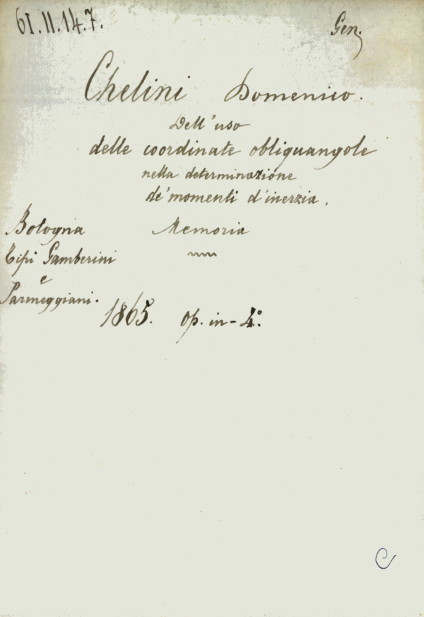 61.II.14.7.
Gen.
Chelini Domenico.
Dell'uso
delle coordinate obliquangole
nella determinazione
de' momenti d'inerzia.
Memoria
Bologna
Tipi Gamberini
e
Parmeggiani.
1865. Op. in-4°.
C